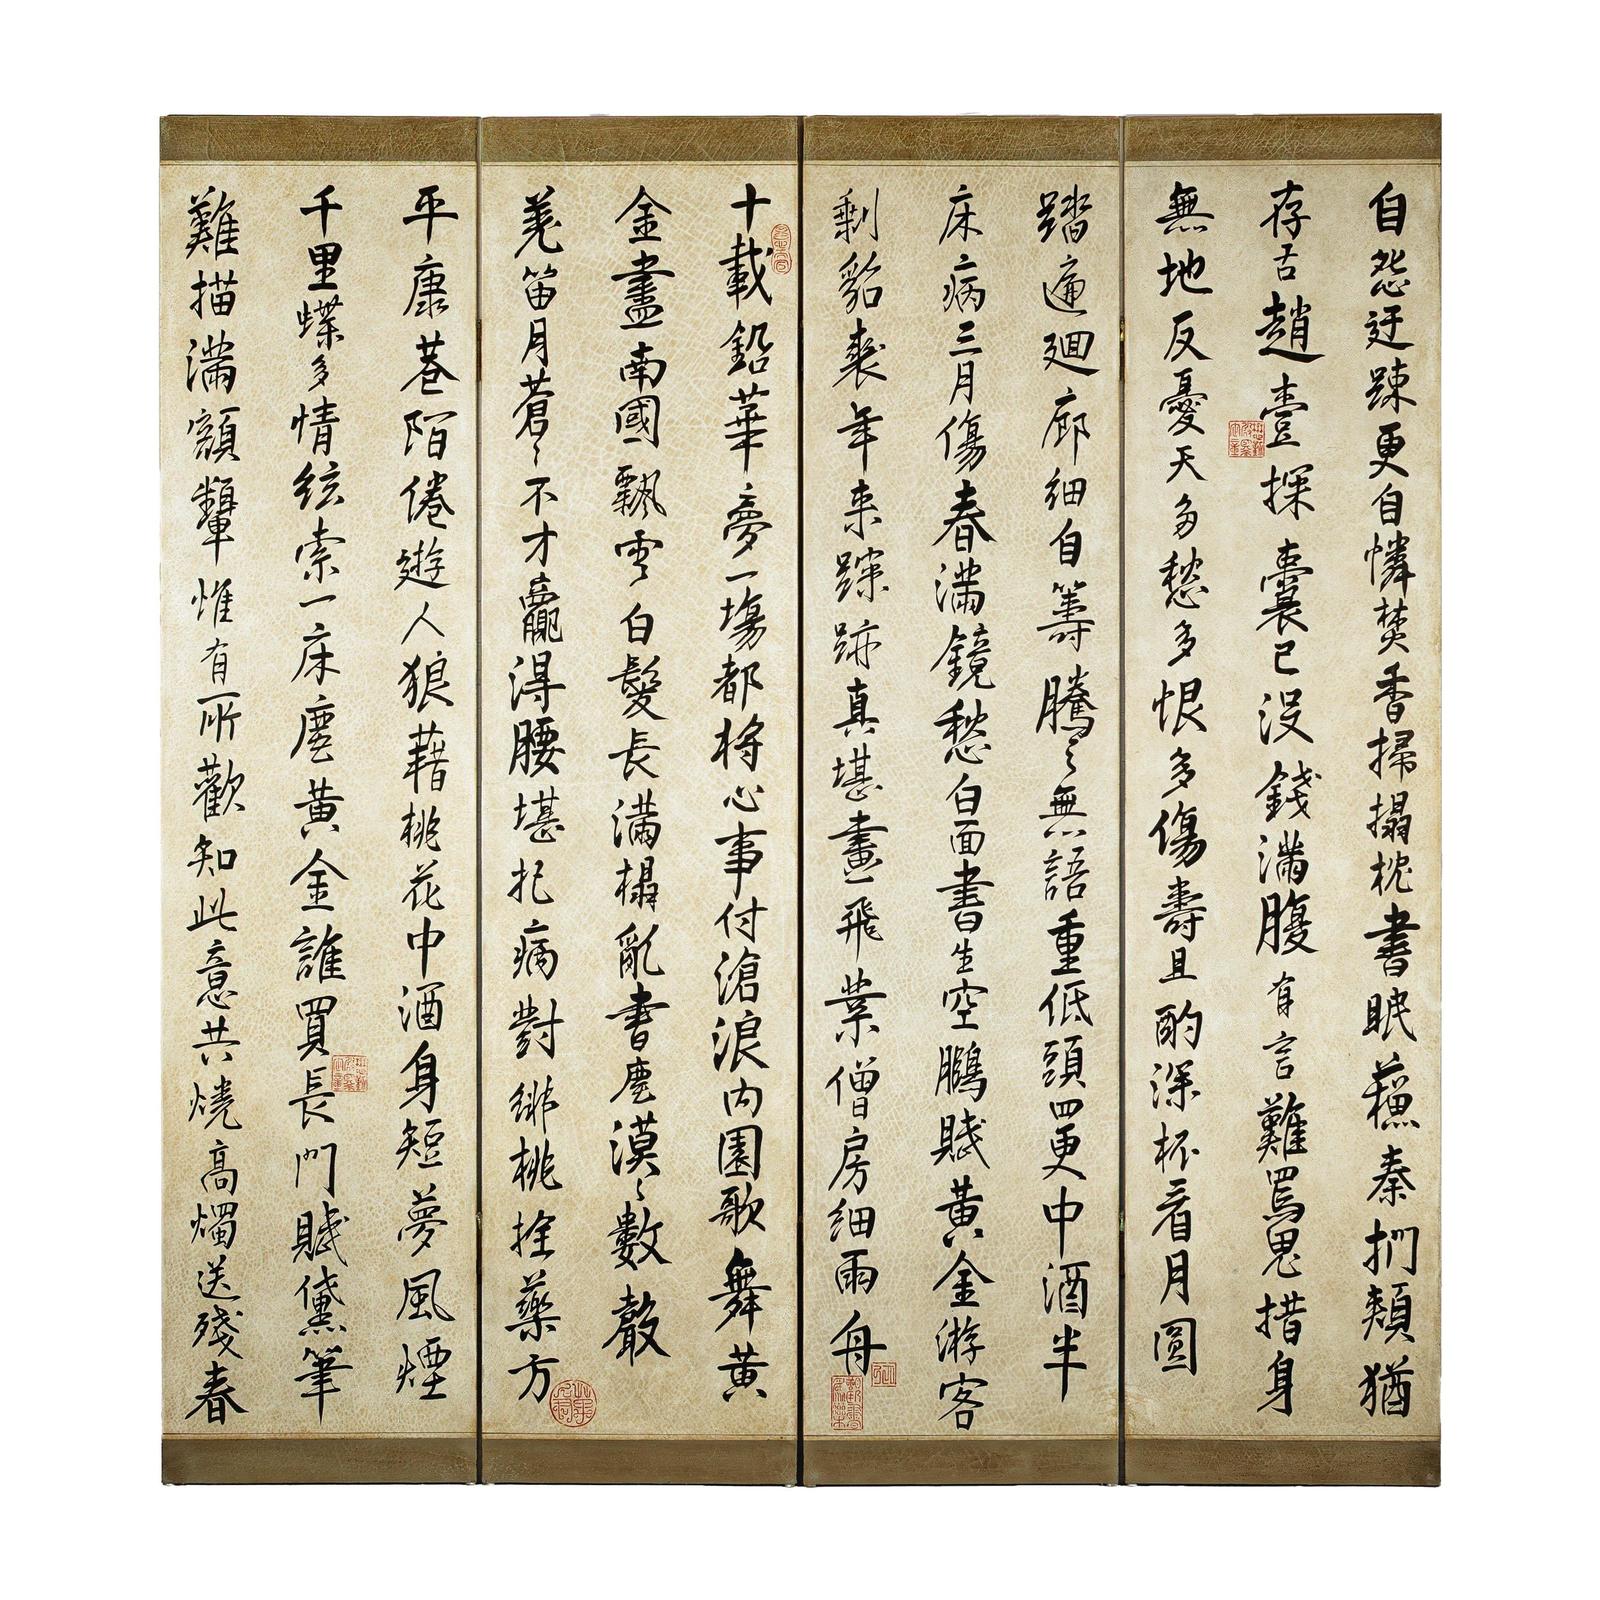 自怨迂踈更自憐焚香掃榻枕書眠蘓秦捫頰猶
存舌趙壹探囊已没錢滿腹有言難罵鬼措身
無地反憂天多愁多恨多傷壽且酌深杯看月圓
踏遍廻廊細自籌騰々無語重低頭四更中酒半
床病三月傷春滿鏡愁白面書生空鵬賦黃金游客
剩貂裘年来蹤跡真堪畫飛葉僧房細雨舟
十載鉛華夢一塲都将心事付滄浪内園歌舞黃
金盡南國飄零白髮長滿榻亂書塵漠々數聲
羌笛月蒼々不才贏得腰堪把病對緋桃拴藥方
平康巷陌倦遊人狼藉桃花中酒身短夢風煙
千里蝶多情絃索一床塵黃金誰買長門賦黛筆
難描滿額顰惟有所歡知此意共燒高燭送殘春